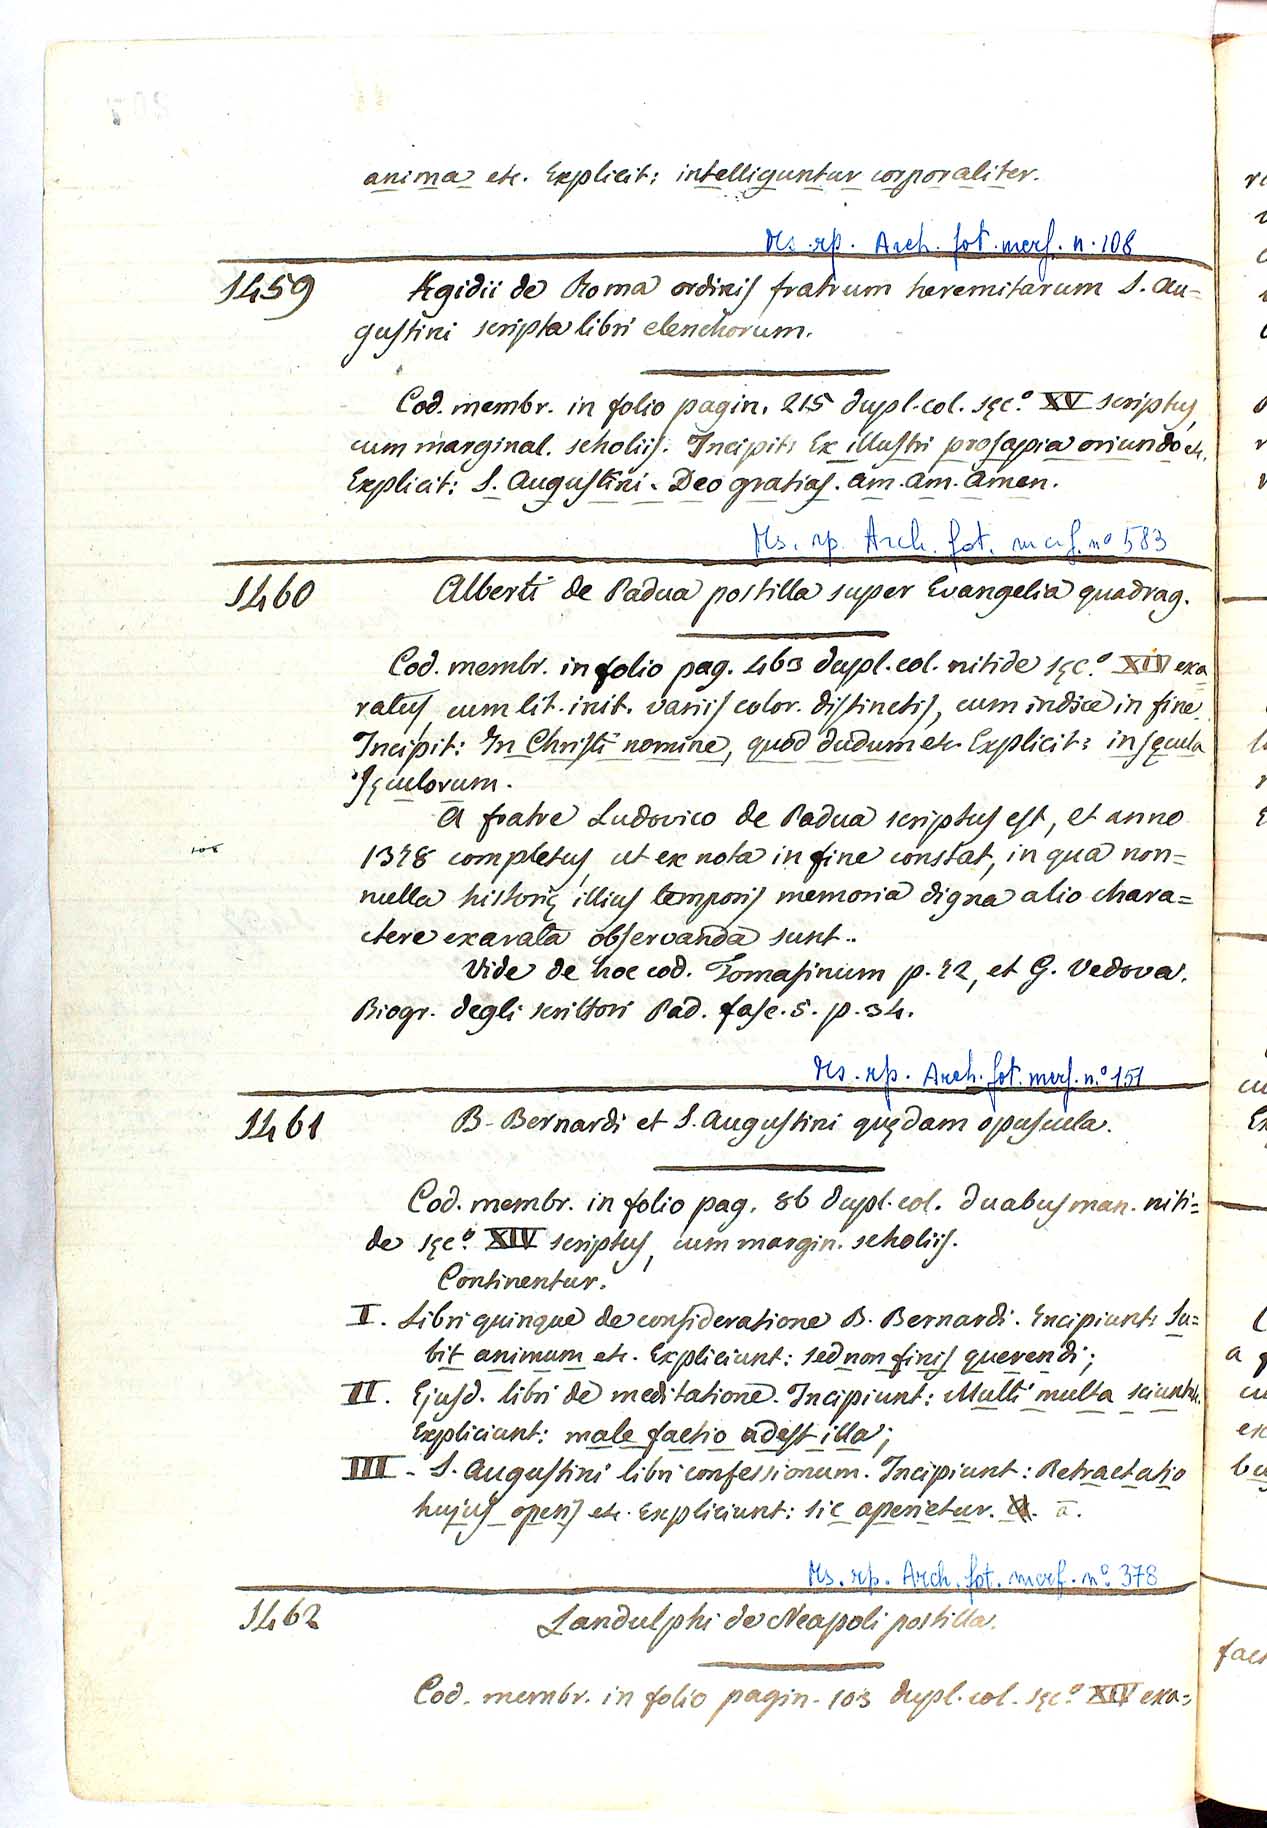 anima etc. Explicit: intelliguntur corporaliter.
Ms. rp. Arch. fot. merf. n. 108
1459 Aegidii de Roma ordinis fratrum heremitarum S. Au=
gustini scripta libri elenchorum.
Cod. membr. in folio pagin. 215 dupl. col. sęc.º XV scriptus,
cum marginal. scholiis. Incipit: Ex illustri prosapia oriundo etc.
Explicit: S. Augustini. Deo gratias. Am. Am. Amen.
Ms. rp. Arch. fot. merf. nº 583
1460 Alberti de Padua postilla super Evangelia quadrag.
Cod. membr. in folio pag. 463 dupl. col. nitide sęc.º XIV exa
ratus, cum lit. init. variis color. distinctis, cum indice in fine.
Incipit: In Christi nomine, quod dudum etc. Explicit: in sęcula
sęculorum.
A fratre Ludovico de Padua scriptus est, et anno
1378 completus, ut ex nota in fine constat, in qua non=
nulla historię illius temporis memoria digna alio chara=
ctere exarata observanda sunt.
Vide de hoc cod. Tomasinum p. 72, et G. Vedova.
Biogr. degli scrittori Pad. fasc. 5. p. 34.
Ms. rp. Arch. fot. merf. n.º 151
1461 B. Bernardi et S. Augustini quędam opuscula.
Cod. membr. in folio pag. 86 dupl. col. duabus man. niti=
de sęc.º XIV scriptus, cum margin. scholiis.
Continentur.
I. Libri quinque de consideratione B. Bernardi. Incipiunt: Su=
bit animum etc. Expliciunt: sed non finis querendi;
II. Ejusd. libri de meditatione. Incipiunt: Multi multa sciunt etc.
Expliciunt: male factio adest illa;
III. S. Augustini libri confessionum. Incipiunt: Retractatio
hujus operis etc. Expliciunt: sic aperietur. a.
Ms. rp. Arch. fot. merf. nº 378
1462 Landulphi de Neapoli postilla.
Cod. membr. in folio pagin. 103 dupl. col. sęc.º XIV exa=